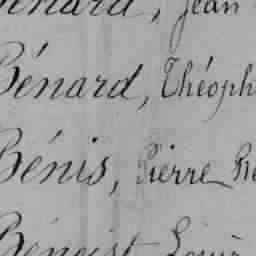 Bénard, Jean
Bénard, Théoph
Bénis, Pierre
Benoist, Louis